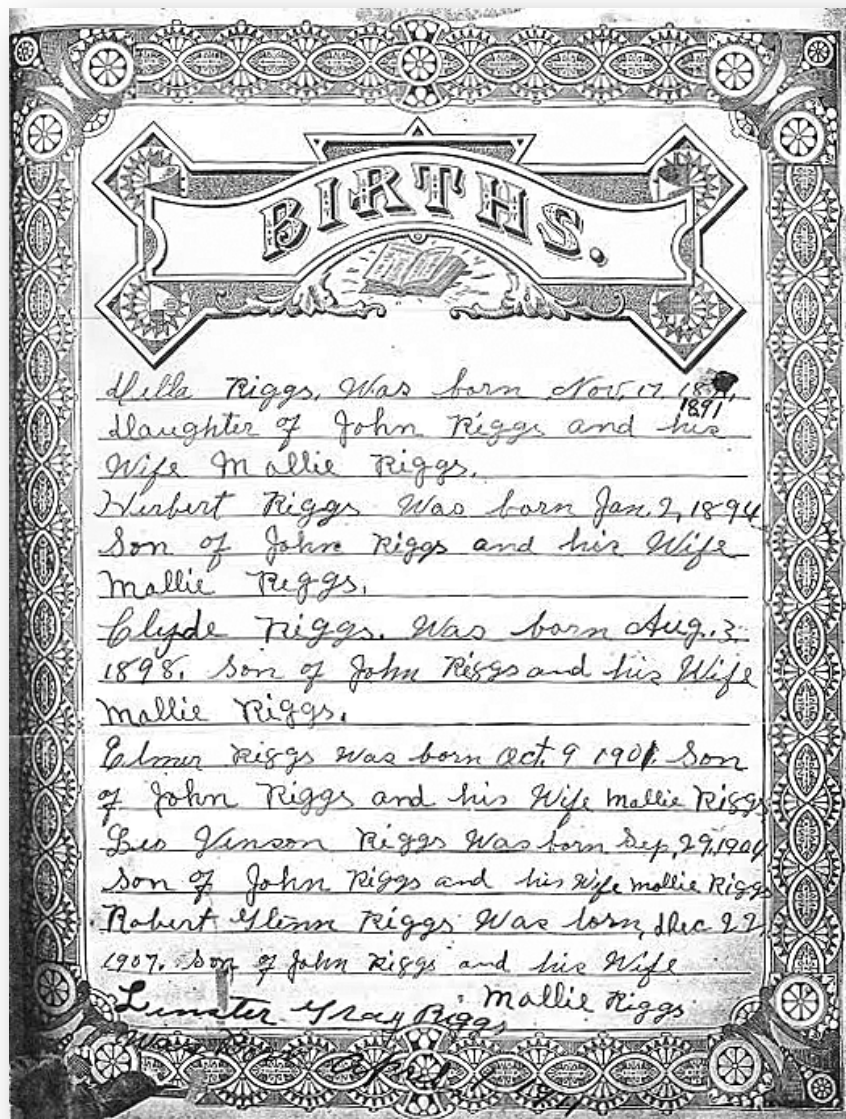 BIRTHS.
Della Riggs. Was born Nov. 17 18
1891
Daughter of John Riggs and his
Wife Mallie Riggs.
Herbert Riggs Was born Jan. 2, 1894
Son of John Riggs and his Wife
Mallie Riggs.
Clyde Riggs. Was born Aug. 3.
1898. Son of John Riggs and his Wife
Mallie Riggs.
Elmer Riggs Was born Oct. 9 1901. Son
of John Riggs and his Wife Mallie Riggs
Leo Vinson Riggs Was born Sep. 29, 1904
Son of John Riggs and his Wife Mallie Riggs
Robert Glenn Riggs Was born, Dec 22
1907. Son of John Riggs and his Wife
Mallie Riggs
Gray Riggs
Was Born April